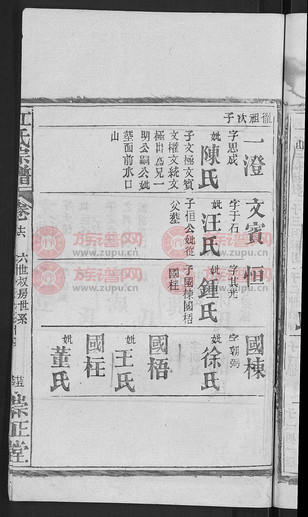 從祖沈子
一澄
字思成
妣陳氏
子文極文賓
文權文統文
極出爲兄一
明公嗣公妣
墓面前水口
山
文賓
字于石
妣汪氏
子恒公妣從
父墓
恒
字其光
妣鍾氏
子國棟國梧
國柱
國棟
字朝弼
妣徐氏
國梧
妣王氏
國柱
妣董氏
江氏宗譜
卷六
六世叔房世系
崇正堂
族譜网
www.zupu.cn